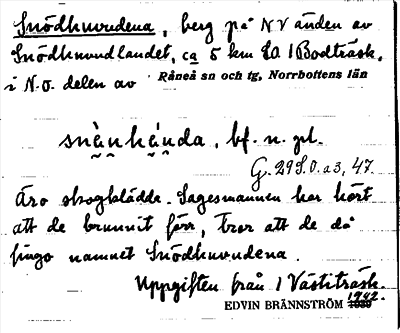 Snödhuvudena, berg på NV änden av
Snödhuvudlandet, ca 5 km SO. 1 Bodträsk,
i N.O. delen av Råneå sn och tg, Norrbottens län
bf. n. pl.
G. 29 S.O. a3, 47.
Äro skogklädda. Sagesmannen har hört
att de brunnit förr, tror att de då
fingo namnet Snödhuvudena.
Uppgiften från 1 Västiträsk.
EDVIN BRÄNNSTRÖM 1942.